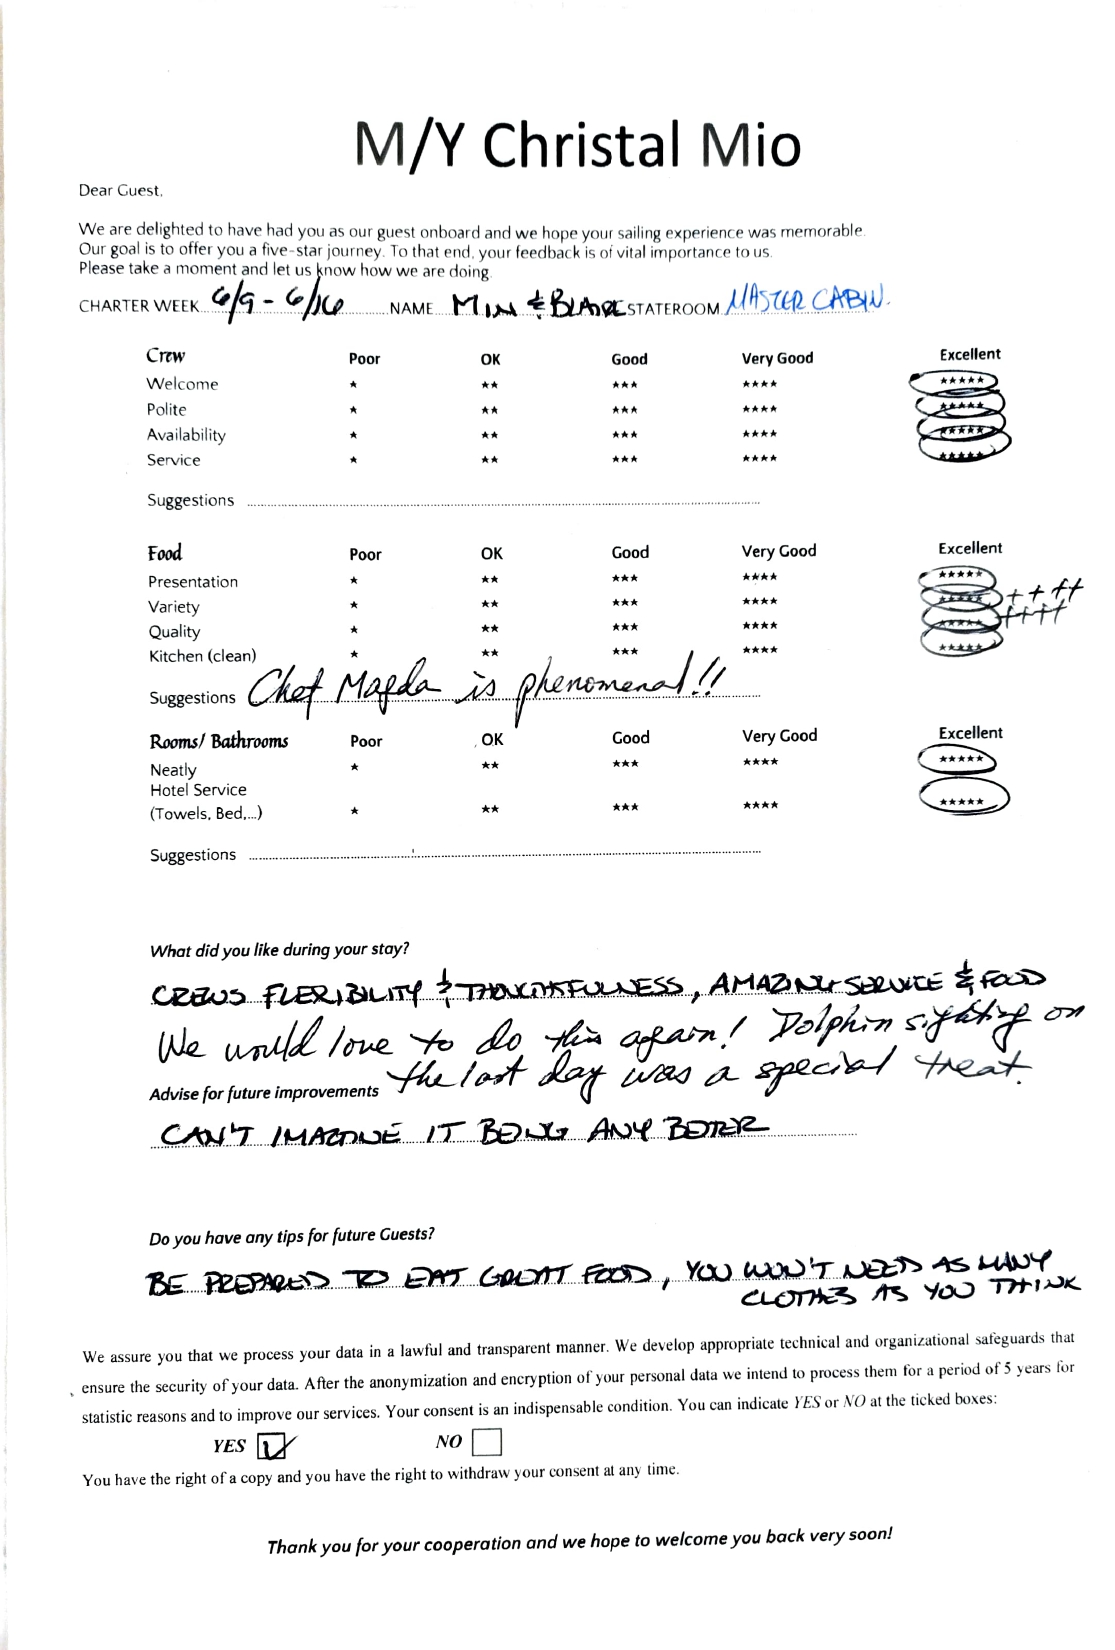 M/Y Christal Mio
Dear Guest,
We are delighted to have had you as our guest onboard and we hope your sailing experience was memorable.
Our goal is to offer you a five-star journey. To that end, your feedback is of vital importance to us.
Please take a moment and let us know how we are doing.
CHARTER WEEK 6/9 - 6/16 NAME MIN & BLAIRE STATEROOM MASTER CABIN.
Crew Poor OK Good Very Good Excellent
Welcome ★ ★★ ★★★ ★★★★ ★★★★★
Polite ★ ★★ ★★★ ★★★★ ★★★★★
Availability ★ ★★ ★★★ ★★★★ ★★★★★
Service ★ ★★ ★★★ ★★★★ ★★★★★
Suggestions
Food Poor OK Good Very Good Excellent
Presentation ★ ★★ ★★★ ★★★★ ★★★★★
Variety ★ ★★ ★★★ ★★★★ ★★★★★ ++++
Quality ★ ★★ ★★★ ★★★★ ★★★★★ ++++
Kitchen (clean) ★ ★★ ★★★ ★★★★ ★★★★★
Suggestions Chef Magda is phenomenal!!
Rooms/ Bathrooms Poor OK Good Very Good Excellent
Neatly ★ ★★ ★★★ ★★★★ ★★★★★
Hotel Service
(Towels, Bed,...) ★ ★★ ★★★ ★★★★ ★★★★★
Suggestions
What did you like during your stay?
CREWS FLEXIBILITY & THOUGHTFULNESS, AMAZING SERVICE & FOOD
We would love to do this again! Dolphin sighting on
the last day was a special treat.
Advise for future improvements
CAN'T IMAGINE IT BEING ANY BETTER
Do you have any tips for future Guests?
BE PREPARED TO EAT GREAT FOOD, YOU WON'T NEED AS MANY
CLOTHES AS YOU THINK
We assure you that we process your data in a lawful and transparent manner. We develop appropriate technical and organizational safeguards that
ensure the security of your data. After the anonymization and encryption of your personal data we intend to process them for a period of 5 years for
statistic reasons and to improve our services. Your consent is an indispensable condition. You can indicate YES or NO at the ticked boxes:
YES ✓ NO
You have the right of a copy and you have the right to withdraw your consent at any time.
Thank you for your cooperation and we hope to welcome you back very soon!